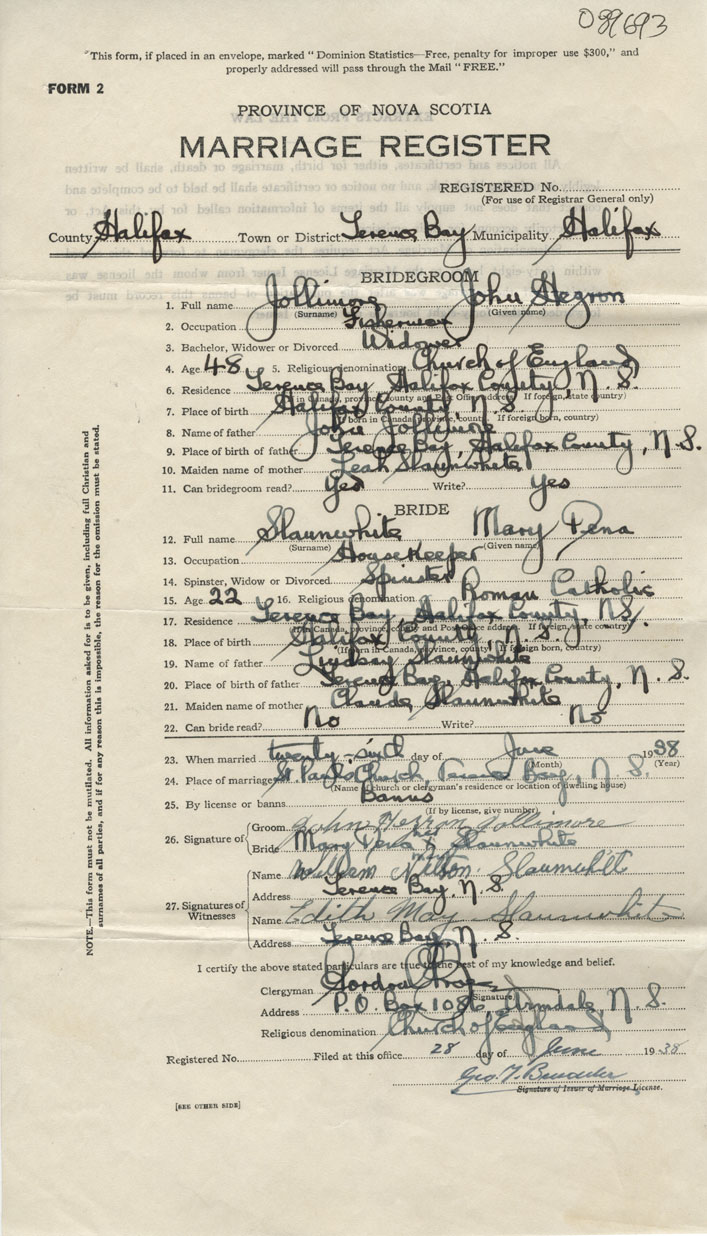 089693
"This form, if placed in an envelope, marked "Dominion Statistics—Free, penalty for improper use $300," and
properly addressed will pass through the Mail "FREE."
FORM 2
PROVINCE OF NOVA SCOTIA
MARRIAGE REGISTER
REGISTERED No.
(For use of Registrar General only)
County Halifax Town or District Terence Bay Municipality Halifax
BRIDEGROOM
1. Full name Jollimore John Hezron
(Surname) (Given name)
2. Occupation Fisherman
3. Bachelor, Widower or Divorced Widower
4. Age 48 5. Religious denomination Church of England
6. Residence Terence Bay Halifax County, N. S.
7. Place of birth Halifax County, N. S.
8. Name of father John Jollimore
9. Place of birth of father Terence Bay, Halifax County, N. S.
10. Maiden name of mother Leah Slaunwhite
11. Can bridegroom read? Yes Write? Yes
BRIDE
12. Full name Slaunwhite Mary Pena
(Surname) (Given name)
13. Occupation Housekeeper
14. Spinster, Widow or Divorced Spinster
15. Age 22 16. Religious denomination Roman Catholic
17. Residence Terence Bay, Halifax County, N.S.
18. Place of birth Halifax County, N. S.
19. Name of father Lindsay Slaunwhite
20. Place of birth of father Terence Bay, Halifax County, N. S.
21. Maiden name of mother Claude Slaunwhite
22. Can bride read? No Write? No
23. When married twenty-sixth day of June 1938
(Month) (Year)
24. Place of marriage St. Paul's Church, Terence Bay, N. S.
(Name of church or clergyman's residence or location of dwelling house)
25. By license or banns Banns
(If by license, give number)
26. Signature of Groom John Hezron Jollimore
Bride Mary Pena X Slaunwhite
27. Signatures of Witnesses
Name William Nelson Slaunwhite
Address Terence Bay, N. S.
Name Edith May Slaunwhite
Address Terence Bay, N. S.
I certify the above stated particulars are true to the best of my knowledge and belief.
Clergyman Gordon
(Signature)
Address P.O. Box 1086, Armdale, N. S.
Religious denomination Church of England
Registered No. Filed at this office 28 day of June 1938
Geo. T.
Signature of Issuer of Marriage License.
[SEE OTHER SIDE]
NOTE.—This form must not be mutilated. All information asked for is to be given, including full Christian and
surnames of all parties, and if for any reason this is impossible, the reason for the omission must be stated.